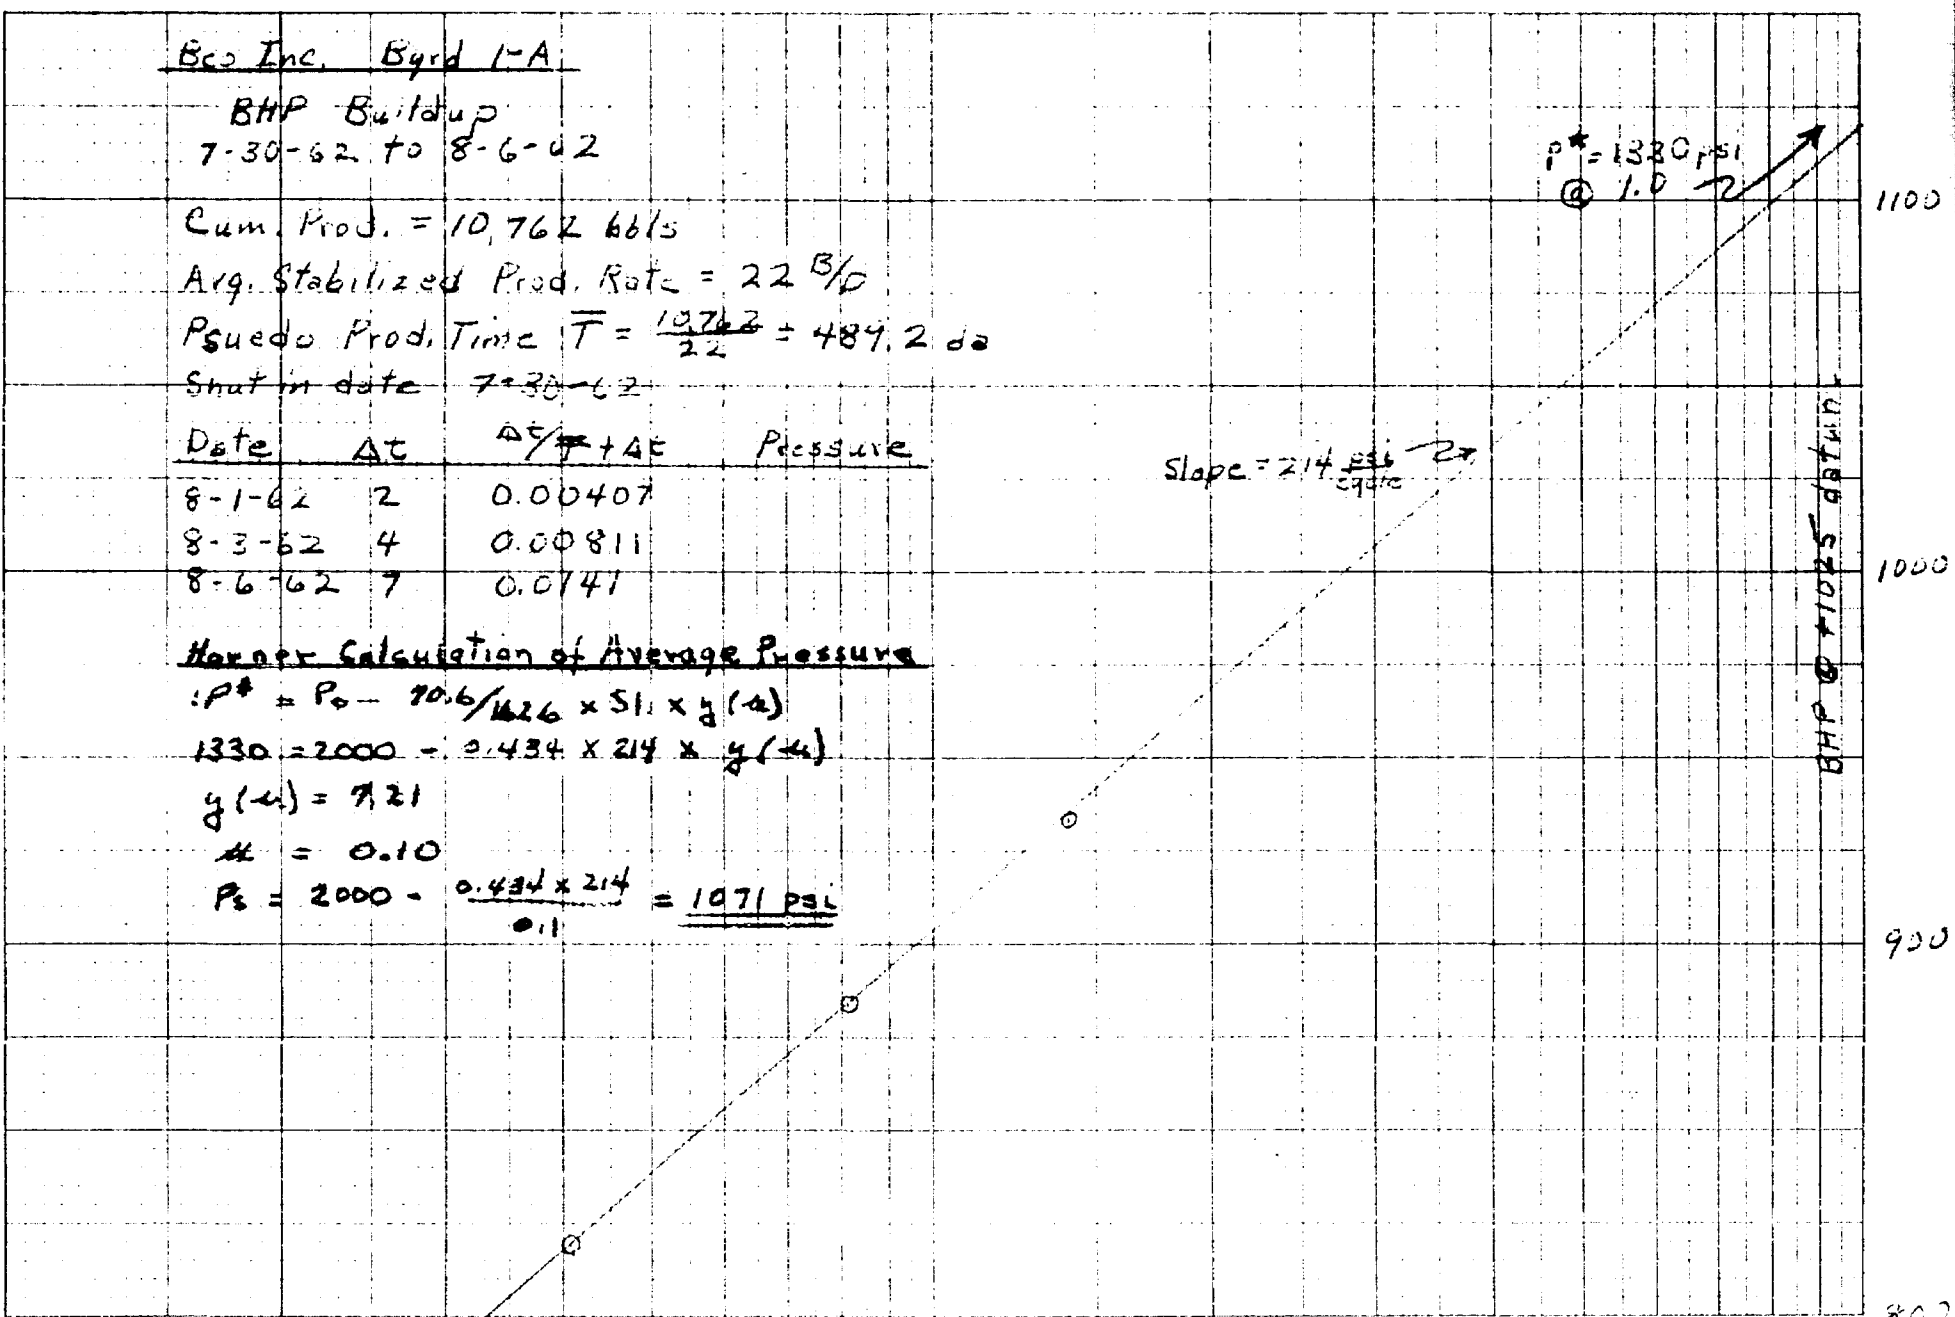 Bco Inc. Byrd 1-A
BHP Buildup
7-30-62 to 8-6-62
Cum. Prod. = 10,762 bbls
Avg. Stabilized Prod. Rate = 22 B/D
Psuedo Prod. Time T̅ = 10,762/22 = 489.2 da
Shut in date 7-30-62
Date Δt Δt/T̅+Δt Pressure
8-1-62 2 0.00407
8-3-62 4 0.00811
8-6-62 7 0.0141
Horner Calculation of Average Pressure
P* = Po - 70.6/162.6 x Sl. x y(u)
1330 = 2000 - 0.434 x 214 x y(u)
y(u) = 7.21
u = 0.10
Ps = 2000 - 0.434 x 214 / 0.1 = 1071 psi
P* = 1330 psi
@ 1.0
Slope = 214 psi/cycle
BHP @ +1025 datum
1100
1000
900
800